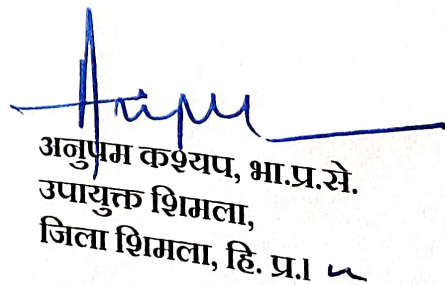 अनुपम कश्यप, भा.प्र.से.
उपायुक्त शिमला,
जिला शिमला, हि. प्र.।